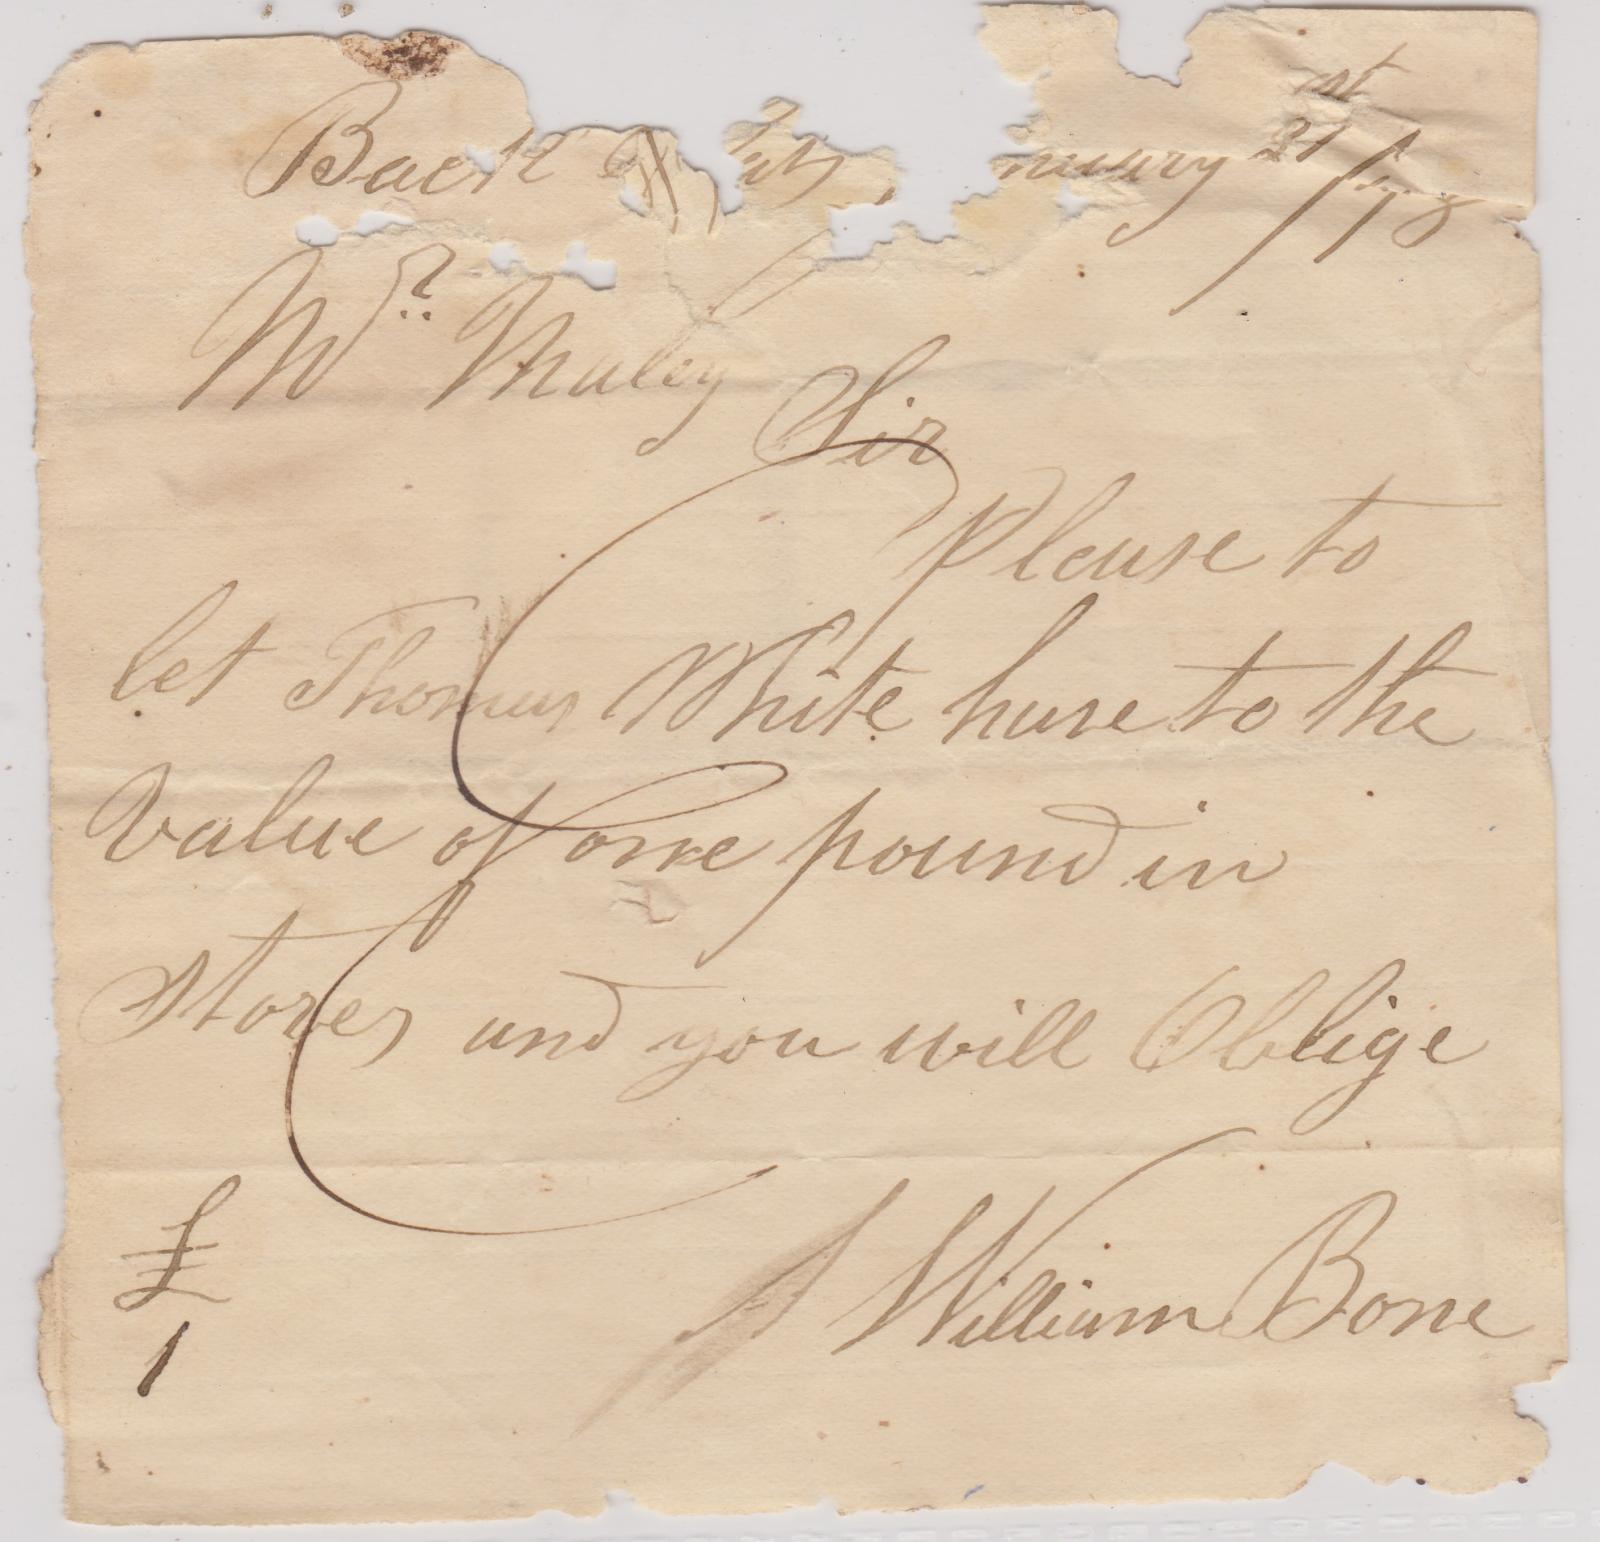 Back
21st
Mr. Maley Sir
Please to
let Thomas White have to the
Value of one pound in
Stores and you will Oblige
£
1
William Bone